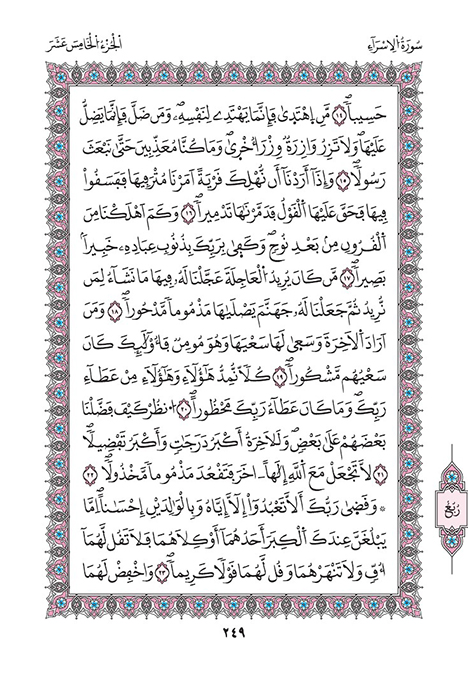 سُورَةُ الِاسْرَآءِ
الجُزْءُ الْخَامِسَ عَشَرَ
حَسِيباٗۖ ١٤ مَّنِ اِ۪هْتَد۪يٰ فَإِنَّمَا يَهْتَدِے لِنَفْسِهِۦۖ وَمَن ضَلَّ فَإِنَّمَا يَضِلُّ
عَلَيْهَاۖ وَلَا تَزِرُ وَازِرَةٞ وِزْرَ أُخْر۪يٰۖ وَمَا كُنَّا مُعَذِّبِينَ حَتَّىٰ نَبْعَثَ
رَسُولاٗۖ ١٥ وَإِذَآ أَرَدْنَآ أَن نُّهْلِكَ قَرْيَةً اَمَرْنَا مُتْرَفِيهَا فَفَسَقُواْ
فِيهَا فَحَقَّ عَلَيْهَا اَ۬لْقَوْلُ فَدَمَّرْنَٰهَا تَدْمِيراٗۖ ١٦ وَكَمَ اَهْلَكْنَا مِنَ
اَ۬لْقُرُونِ مِنۢ بَعْدِ نُوحٖۖ وَكَف۪يٰ بِرَبِّكَ بِذُنُوبِ عِبَادِهِۦ خَبِيراَۢ
بَصِيراٗۖ ١٧ مَّن كَانَ يُرِيدُ اُ۬لْعَاجِلَةَ عَجَّلْنَا لَهُۥ فِيهَا مَا نَشَآءُ لِمَن
نُّرِيدُ ثُمَّ جَعَلْنَا لَهُۥ جَهَنَّمَ يَصْلَيٰهَا مَذْمُوماٗ مَّدْحُوراٗۖ ١٨ وَمَنَ
اَرَادَ اَ۬لَاخِرَةَ وَسَع۪يٰ لَهَا سَعْيَهَا وَهُوَ مُومِنٞ فَأُوْلَٰٓئِكَ كَانَ
سَعْيُهُم مَّشْكُوراٗۖ ١٩ كُلّاٗ نُّمِدُّ هَٰٓؤُلَآءِ وَهَٰٓؤُلَآءِ مِنْ عَطَآءِ
رَبِّكَۖ وَمَا كَانَ عَطَآءُ رَبِّكَ مَحْظُوراًۖ ٢٠ اُ۟نظُرْ كَيْفَ فَضَّلْنَا
بَعْضَهُمْ عَلَىٰ بَعْضٖۖ وَلَلَاخِرَةُ أَكْبَرُ دَرَجَٰتٖ وَأَكْبَرُ تَفْضِيلاٗۖ
٢١ لَّا تَجْعَلْ مَعَ اَ۬للَّهِ إِلَٰهاً اٰخَرَ فَتَقْعُدَ مَذْمُوماٗ مَّخْذُولاٗۖ ٢٢
۞ وَقَض۪يٰ رَبُّكَ أَلَّا تَعْبُدُوٓاْ إِلَّآ إِيَّاهُ وَبِالْوَٰلِدَيْنِ إِحْسَٰناًۖ اِمَّا
يَبْلُغَنَّ عِندَكَ اَ۬لْكِبَرَ أَحَدُهُمَآ أَوْ كِلَٰهُمَا فَلَا تَقُل لَّهُمَآ
أُفّٖ وَلَا تَنْهَرْهُمَا وَقُل لَّهُمَا قَوْلاٗ كَرِيماٗۖ ٢٣ وَاخْفِضْ لَهُمَا
رُبُعْ
٢٤٩